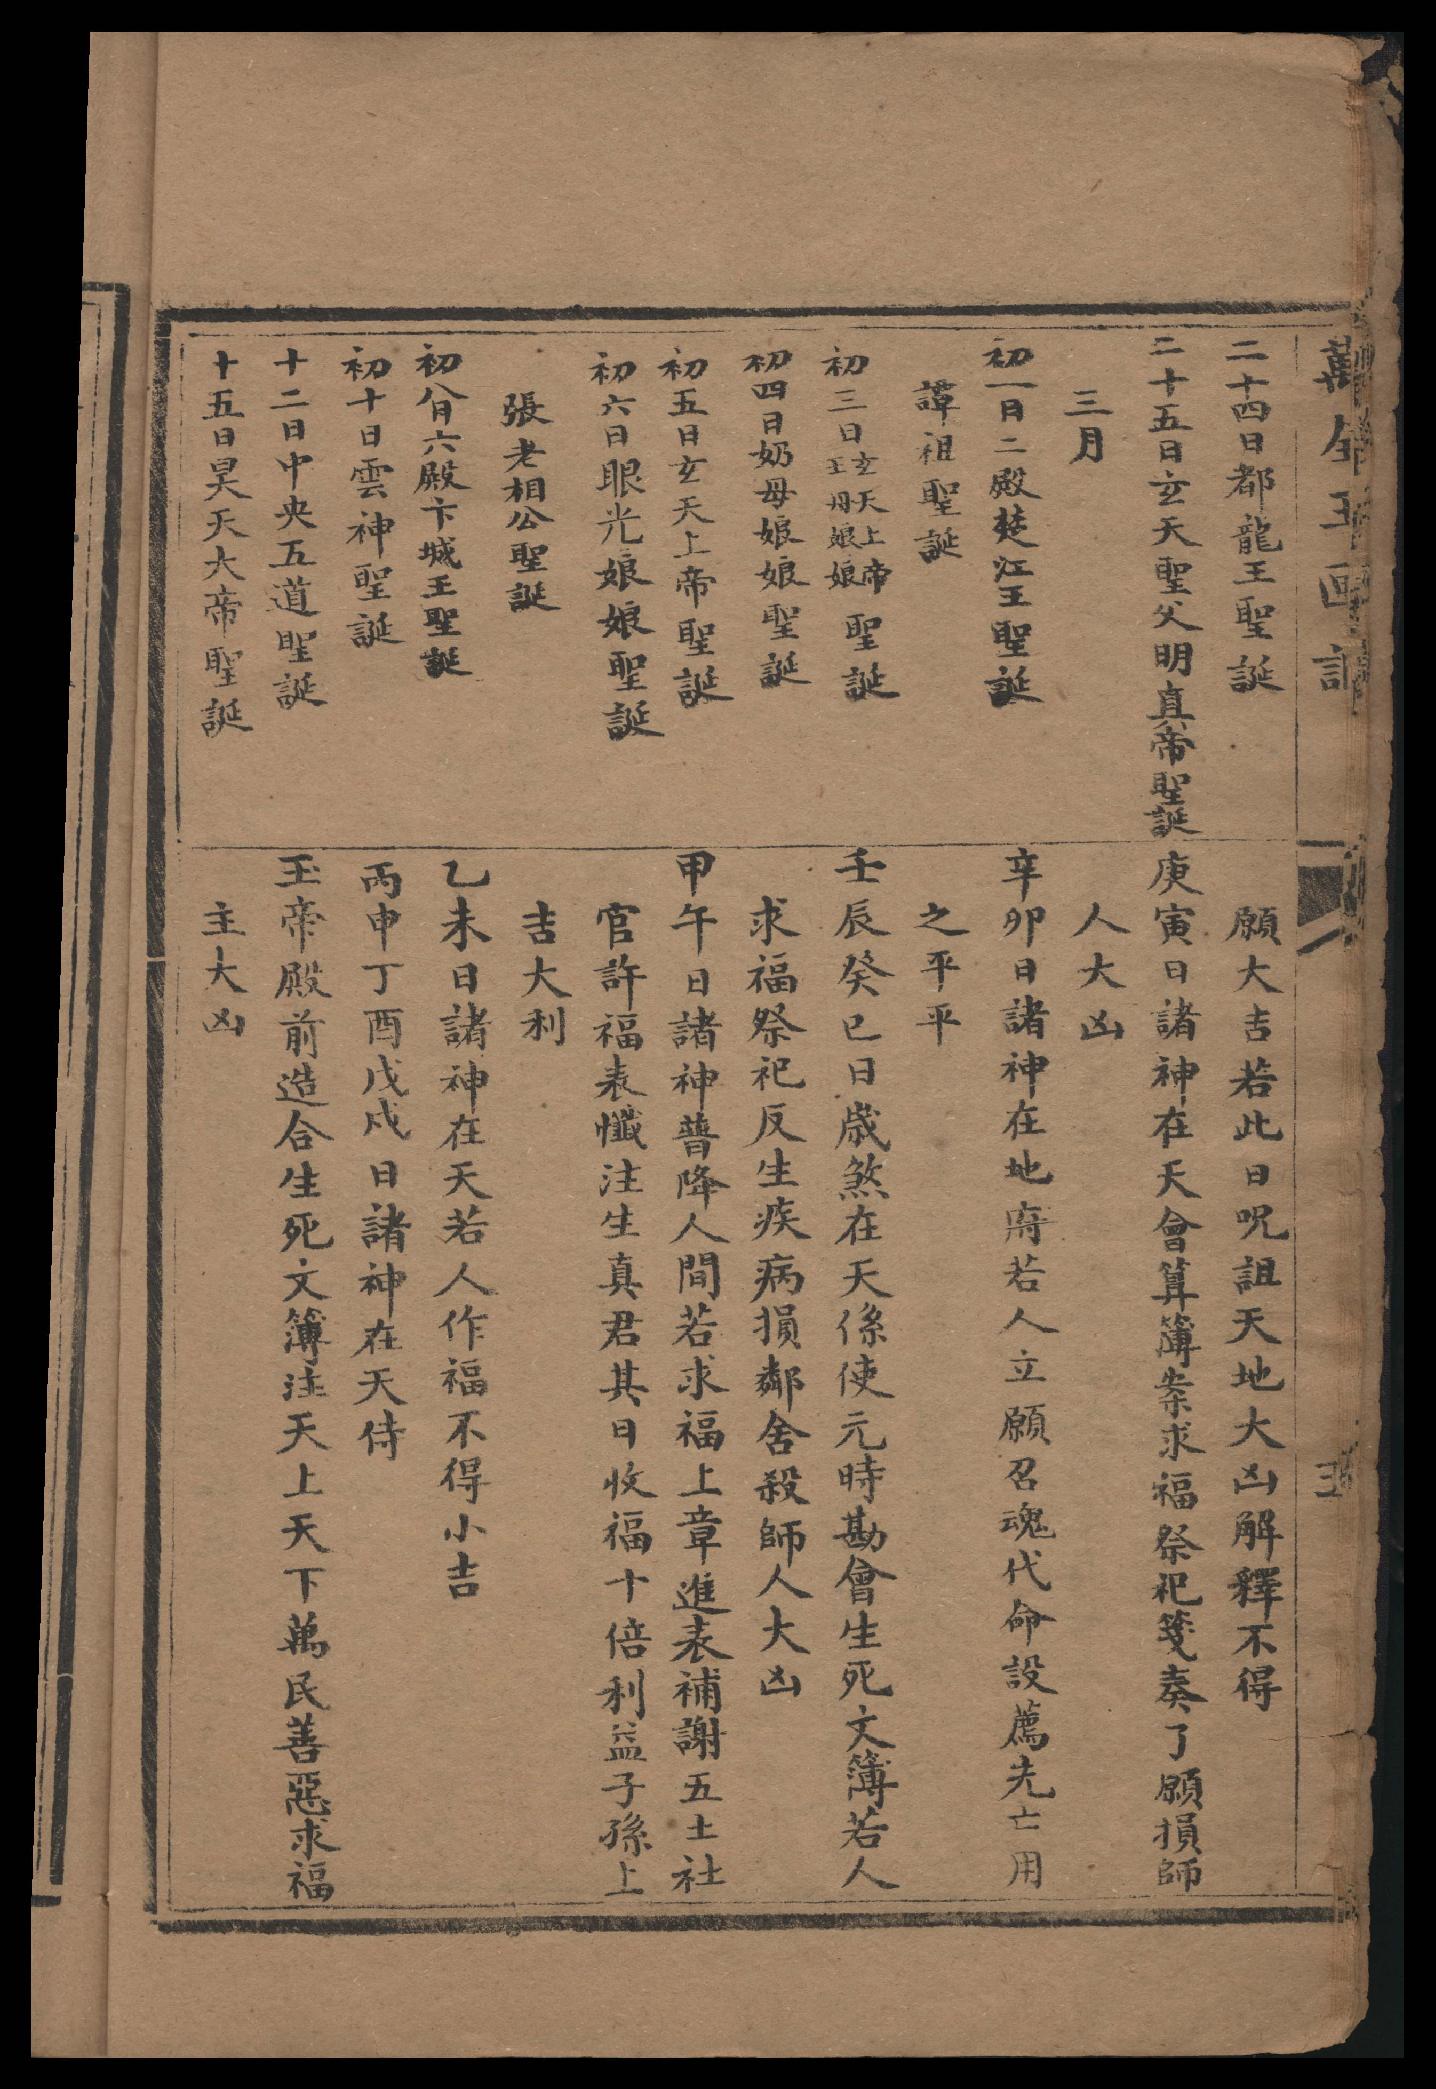 二十四日都龍王聖誕
二十五日玄天聖父明真帝聖誕
三月
初一日二殿楚江王聖誕
譚祖聖誕
初三日玄天上帝王母娘娘聖誕
初四日奶母娘娘聖誕
初五日玄天上帝聖誕
初六日眼光娘娘聖誕
張老相公聖誕
初八日六殿卞城王聖誕
初十日雲神聖誕
十二日中央五道聖誕
十五日昊天大帝聖誕
願大吉若此日呪詛天地大凶解釋不得
庚寅日諸神在天會算簿案求福祭祀箋奏了願損師
人大凶
辛卯日諸神在地府若人立願召魂代命設薦先亡用
之平平
壬辰癸巳日歲煞在天係使元時勘會生死文簿若人
求福祭祀反生疾病損鄰舍殺師人大凶
甲午日諸神普降人間若求福上章進表補謝五土社
官許福表懺注生真君其日收福十倍利益子孫上
吉大利
乙未日諸神在天若人作福不得小吉
丙申丁酉戊戌日諸神在天侍
玉帝殿前造合生死文簿注天上天下萬民善惡求福
主大凶